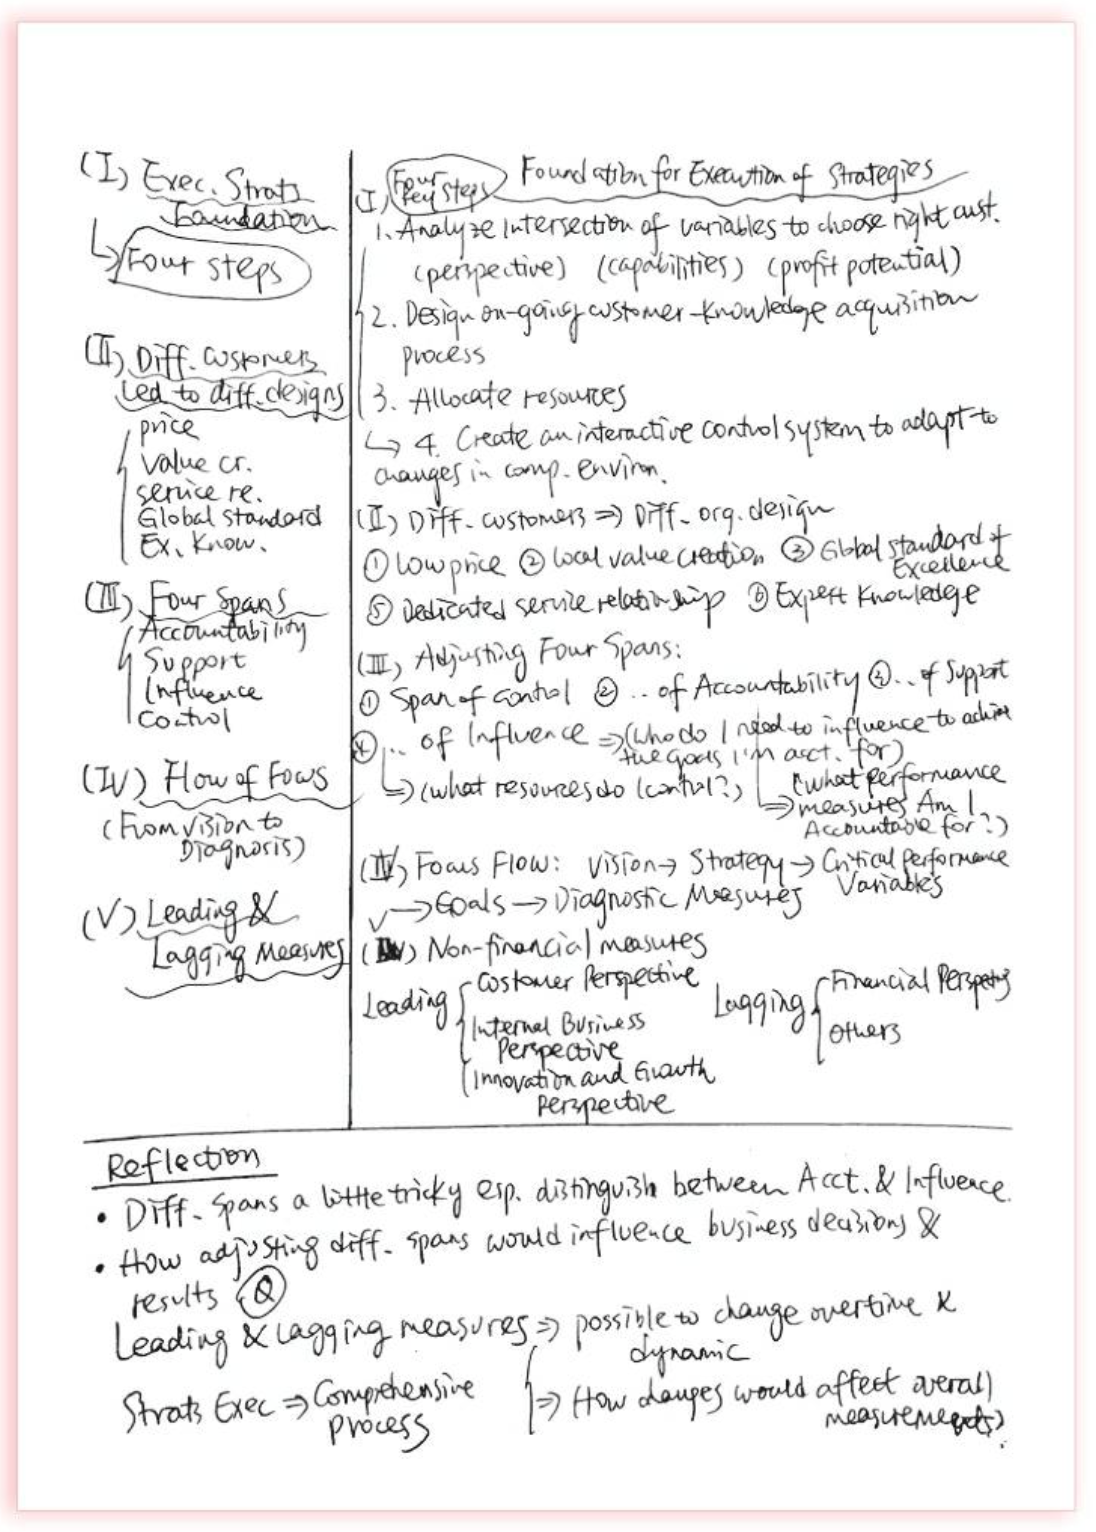 (I) Exec. Strats
Foundation
Four steps
(II) Diff. Customers
Led to diff. designs
price
Value cr.
service re.
Global standard
Ex. Know.
(III) Four Spans
Accountability
Support
Influence
Control
(IV) Flow of Focus
(From vision to
Diagnosis)
(V) Leading &
Lagging Measures
I) Four key steps Foundation for Execution of Strategies
1. Analyze Intersection of variables to choose right cust.
(perspective) (capabilities) (profit potential)
2. Design on-going customer-knowledge acquisition
process
3. Allocate resources
↳ 4. Create an interactive control system to adapt to
changes in comp. environ.
(II) Diff. customers ⇒ Diff. org. design
① Low price ② local value creation ③ Global standard of
Excellence
⑤ Dedicated service relationship ⑥ Expert Knowledge
(III) Adjusting Four Spans:
① Span of control ② .. of Accountability ③ .. of Support
④ .. of Influence ⇒ (who do I need to influence to achieve
the goals I'm acct. for)
↳ (what resources do I control?)
(what performance
⇒ measures Am I
Accountable for?)
(IV) Focus Flow: Vision → Strategy → Critical performance
Variables
→ Goals → Diagnostic Measures
Non-financial measures
Leading
Customer Perspective
Internal Business
Perspective
Innovation and Growth
Perspective
Lagging
Financial Perspectives
Others
Reflection
• Diff. Spans a little tricky esp. distinguish between Acct. & Influence.
• How adjusting diff. spans would influence business decisions &
results Q
Leading & Lagging measures ⇒ possible to change overtime &
dynamic
Strats Exec ⇒ Comprehensive
process
⇒ How changes would affect overall
measurements?